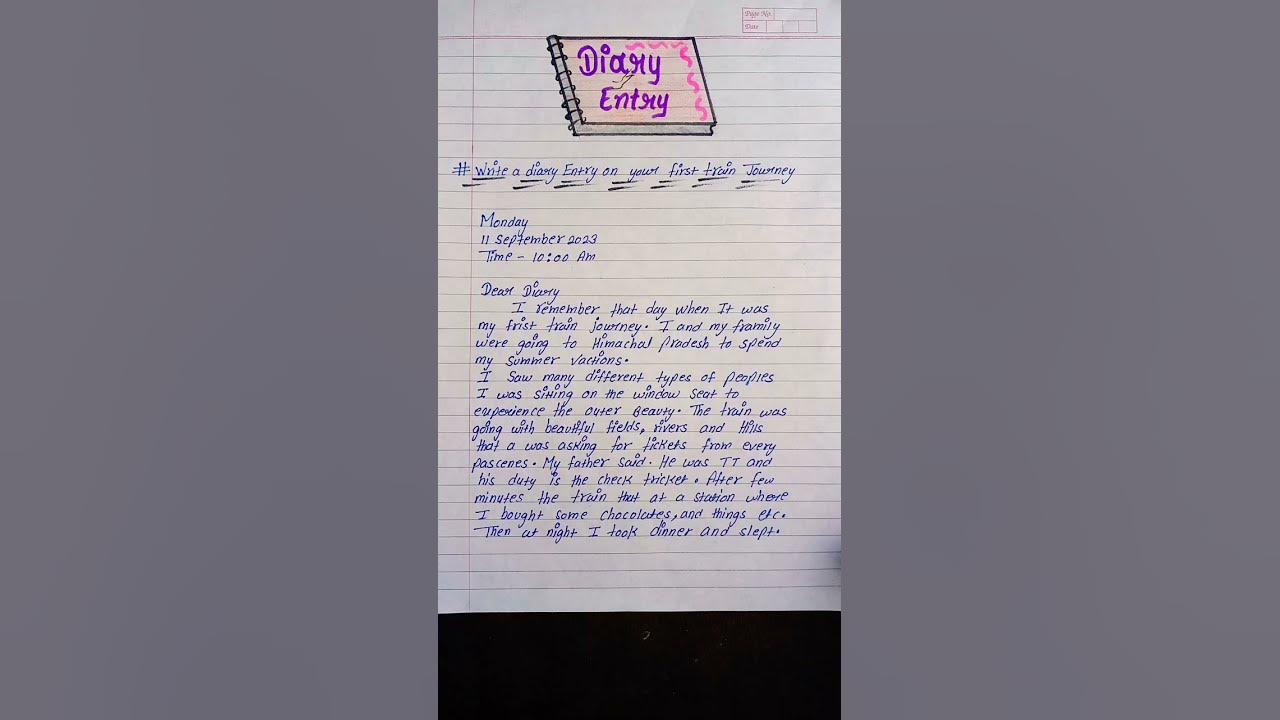 Page No.
Date
Diary
Entry
# Write a diary Entry on your first train Journey
Monday
11 September 2023
Time - 10:00 Am
Dear Diary
I remember that day when It was
my frist train journey. I and my framily
were going to Himachal Pradesh to spend
my summer vactions.
I saw many different types of peoples
I was sitting on the window seat to
experience the outer Beauty. The train was
going with beautiful fields, rivers and Hills
that a was asking for tickets from every
pascenes. My father said. He was TT and
his duty is the check tricket. After few
minutes the train that at a station where
I bought some chocolates, and things etc.
Then at night I took dinner and slept.